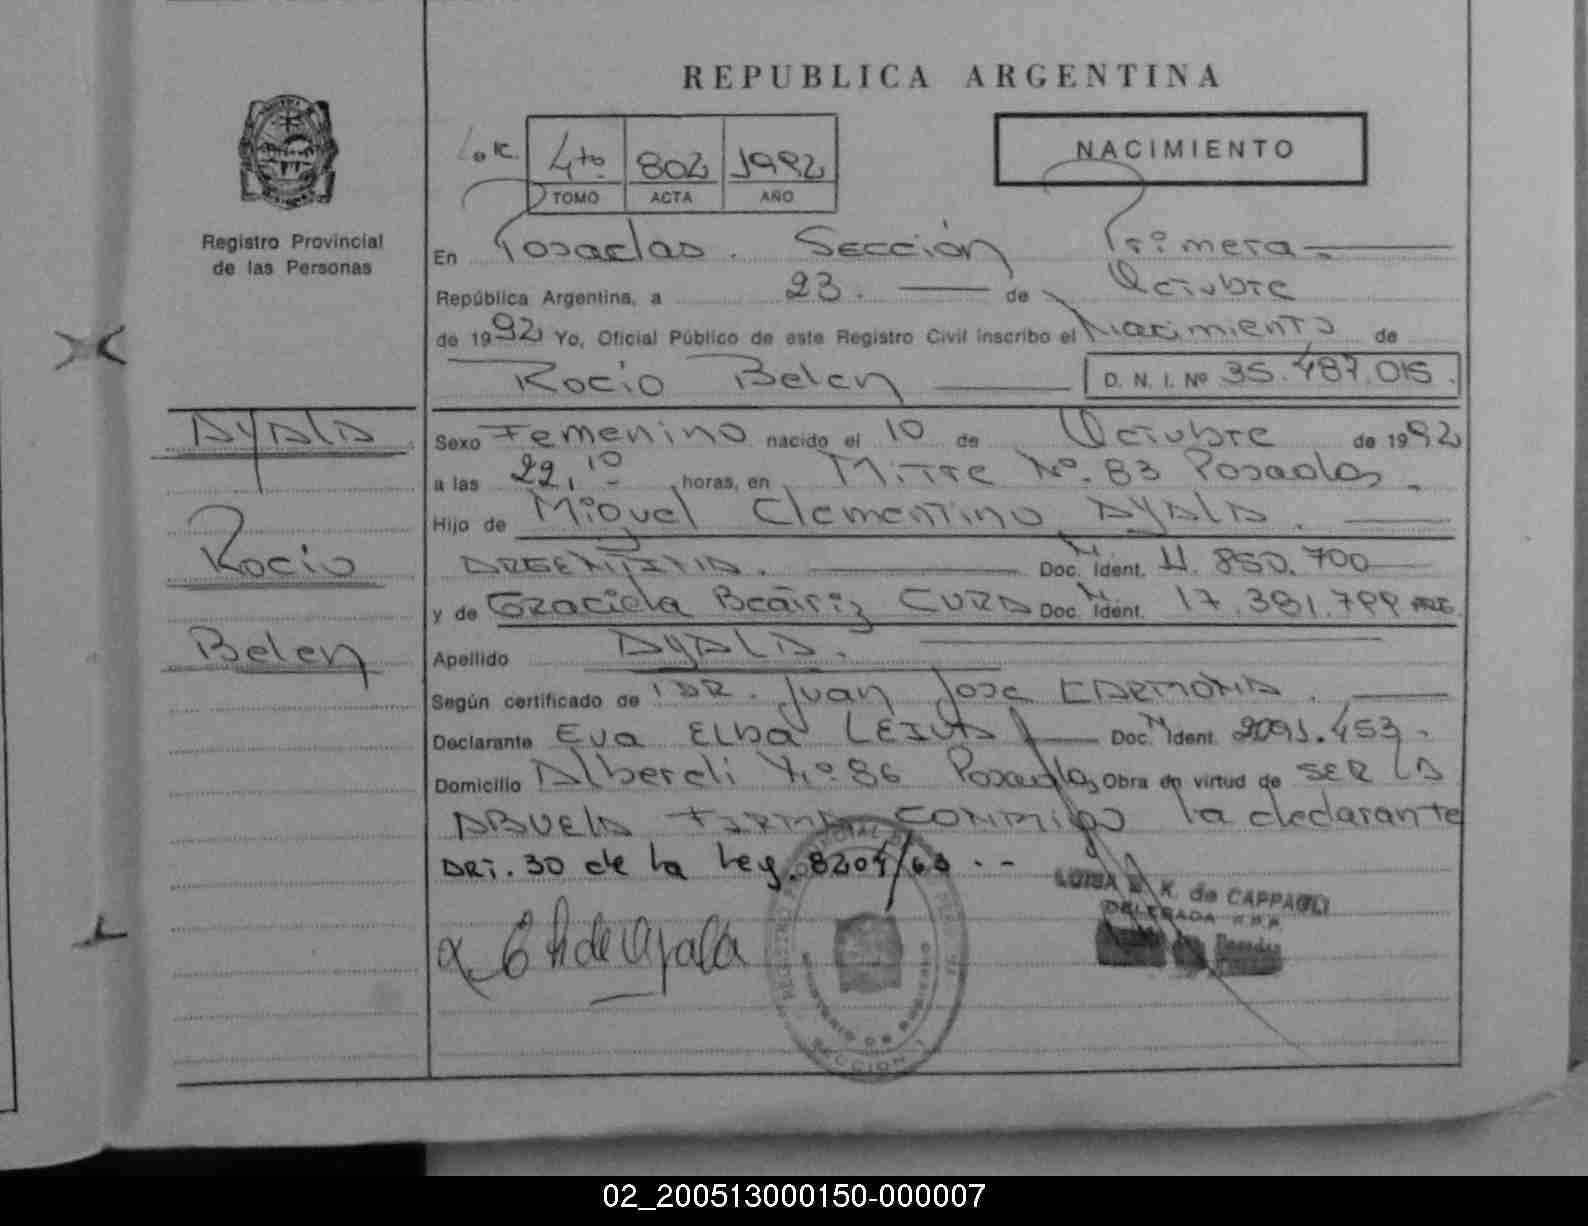 REPUBLICA ARGENTINA
NACIMIENTO
4to 802 1992
TOMO ACTA AÑO
Registro Provincial
de las Personas
En Posadas. Sección Primera.
República Argentina, a 23. de Octubre
de 1992 Yo, Oficial Público de este Registro Civil inscribo el Nacimiento de
Rocio Belen D. N. I. Nº 35.487.015.
AYALA
Rocio
Belen
Sexo Femenino nacido el 10 de Octubre de 1992
a las 22,10 horas, en Mitre Nº. 83 Posadas.
Hijo de Miguel Clementino AYALA.
ARGENTINA. Doc. Ident. 11.850.700
y de Graciela Beatriz CURA Doc. Ident. 17.381.799 ARG.
Apellido AYALA.
Según certificado de DR. Juan José CARMONA.
Declarante Eva Elba Doc. Ident. 2091.453.
Domicilio Alberdi Nº 86 Posadas Obra en virtud de SER LA
ABUELA FIRMA CONMIGO la declarante
ART. 30 de la Ley. 8204/63.-
de Ayala
LUISA K. de CAPPAGLI
DELEGADA
Posadas
SECCION 1
02_200513000150-000007